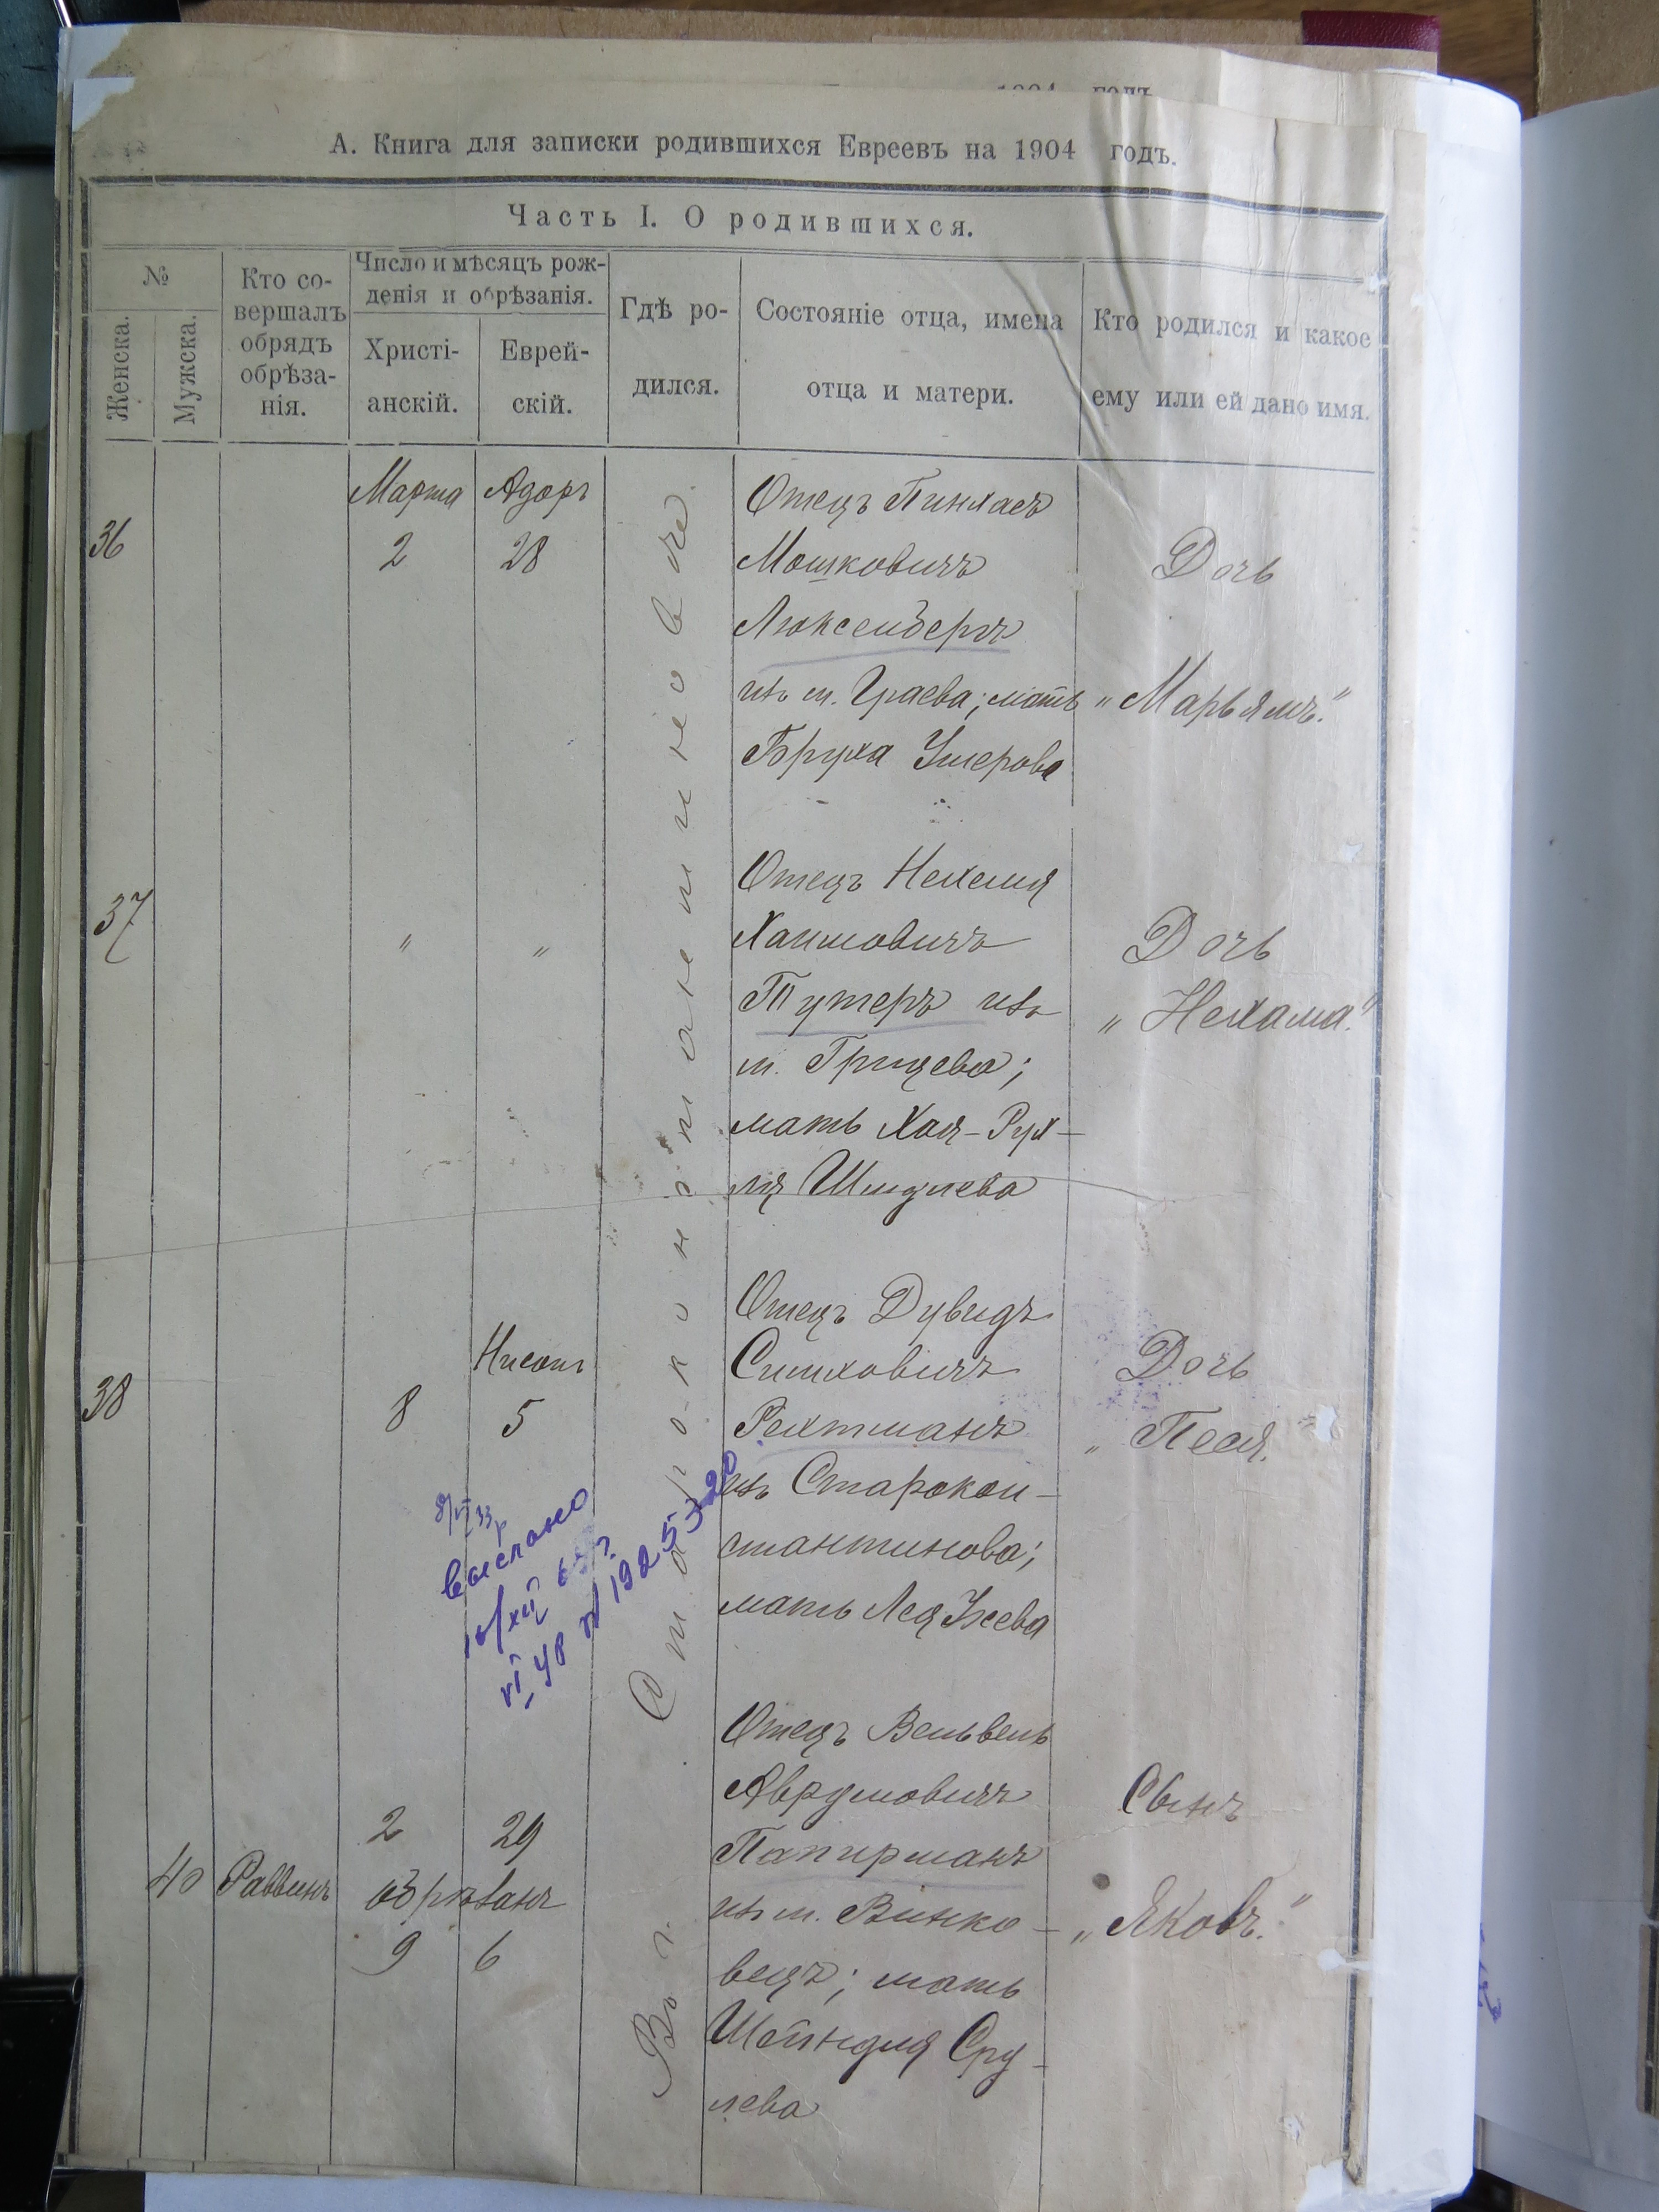 1904 годъ
А. Книга для записки родившихся Евреевъ на 1904 годъ.
Часть I. О родившихся.
№
Женска.
Мужска.
Кто со-
вершалъ
обрядъ
обрѣза-
нія.
Число и мѣсяцъ рож-
денія и обрѣзанія.
Христі-
анскій.
Еврей-
скій.
Гдѣ ро-
дился.
Состояніе отца, имена
отца и матери.
Кто родился и какое
ему или ей дано имя.
Въ г. Старо-константиновѣ
Марта Адоръ
36 2 28
Отецъ Пинхасъ
Мошковичъ
Люксенбергъ
изъ м. Граева; мать
Бруха Умерова
Дочь
„Марьямъ."
37 " "
Отецъ Нехемия
Хаимовичъ
Тутеръ изъ
м. Грицева;
мать Хая-Рух-
ля Шмулева
Дочь
„Нехама."
Нисонъ
38 8 5
Отецъ Дувидъ
Симховичъ
Рехтманъ
изъ Старокон-
стантинова;
мать Лея Усева
Дочь
„Песя."
выслано
40 Раввинъ
2 29
обрѣзанъ
9 6
Отецъ Вельвель
Аврумовичъ
Папирманъ
изъ м. Винко-
вецъ; мать
Шейндля Сру-
лева
Сынъ
„Яковъ."